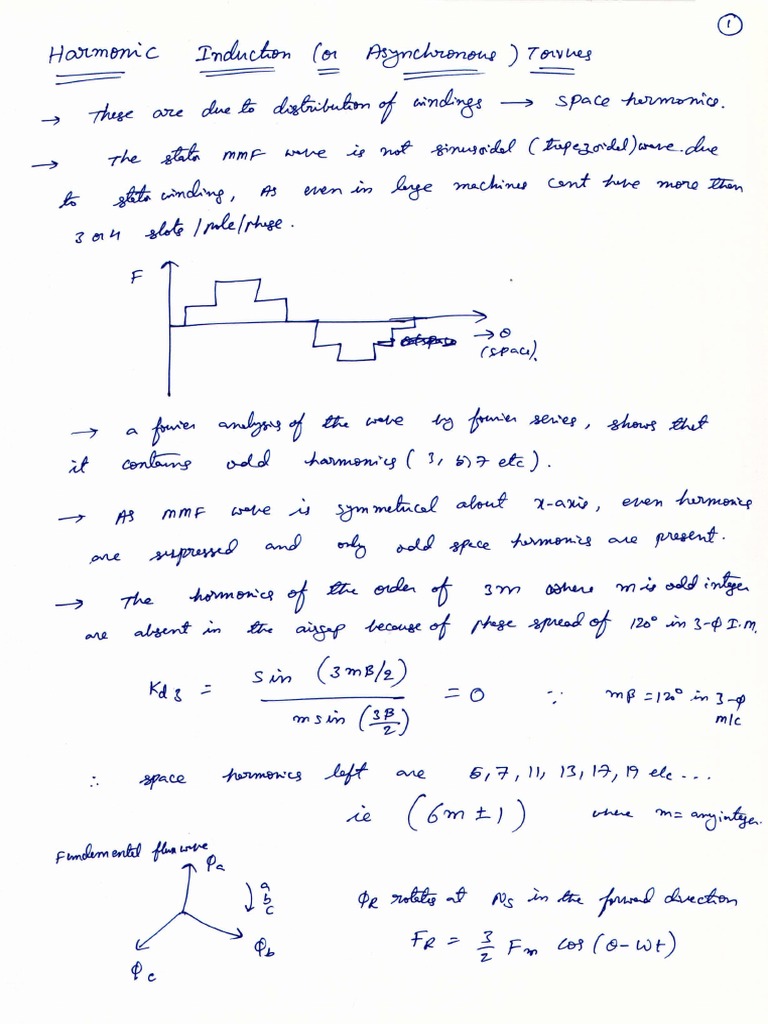 1
Harmonic Induction (or Asynchronous) Torques
→ These are due to distribution of windings → space hermonics.
→ The stator MMF wave is not sinusoidal (trapezoidal) wave. due
to stator winding, As even in large machines cant have more then
3 or 4 slots / pole / phase.
F
→ θ
(space).
→ a fourier analysis of the wave by fourier series, shows that
it contains odd harmonics ( 3, 5, 7 etc ).
→ As MMF wave is symmetrical about x-axis, even hermonics
are suppressed and only odd space hermonics are present.
→ The hormonics of the order of 3m where m is odd integer
are absent in the airgap because of phase spread of 120° in 3-φ I.M.
Kd3 = sin (3mβ/2) / m sin (3β/2) = 0 ∵ mβ = 120° in 3-φ
m/c
∴ space hermonics left are 5, 7, 11, 13, 17, 19 etc ...
ie (6m ± 1) where m = any integer.
Fundemental flux wave
φa
a
b
c
φb
φc
φR rotates at Ns in the forward direction
FR = 3/2 Fm cos (θ - ωt)